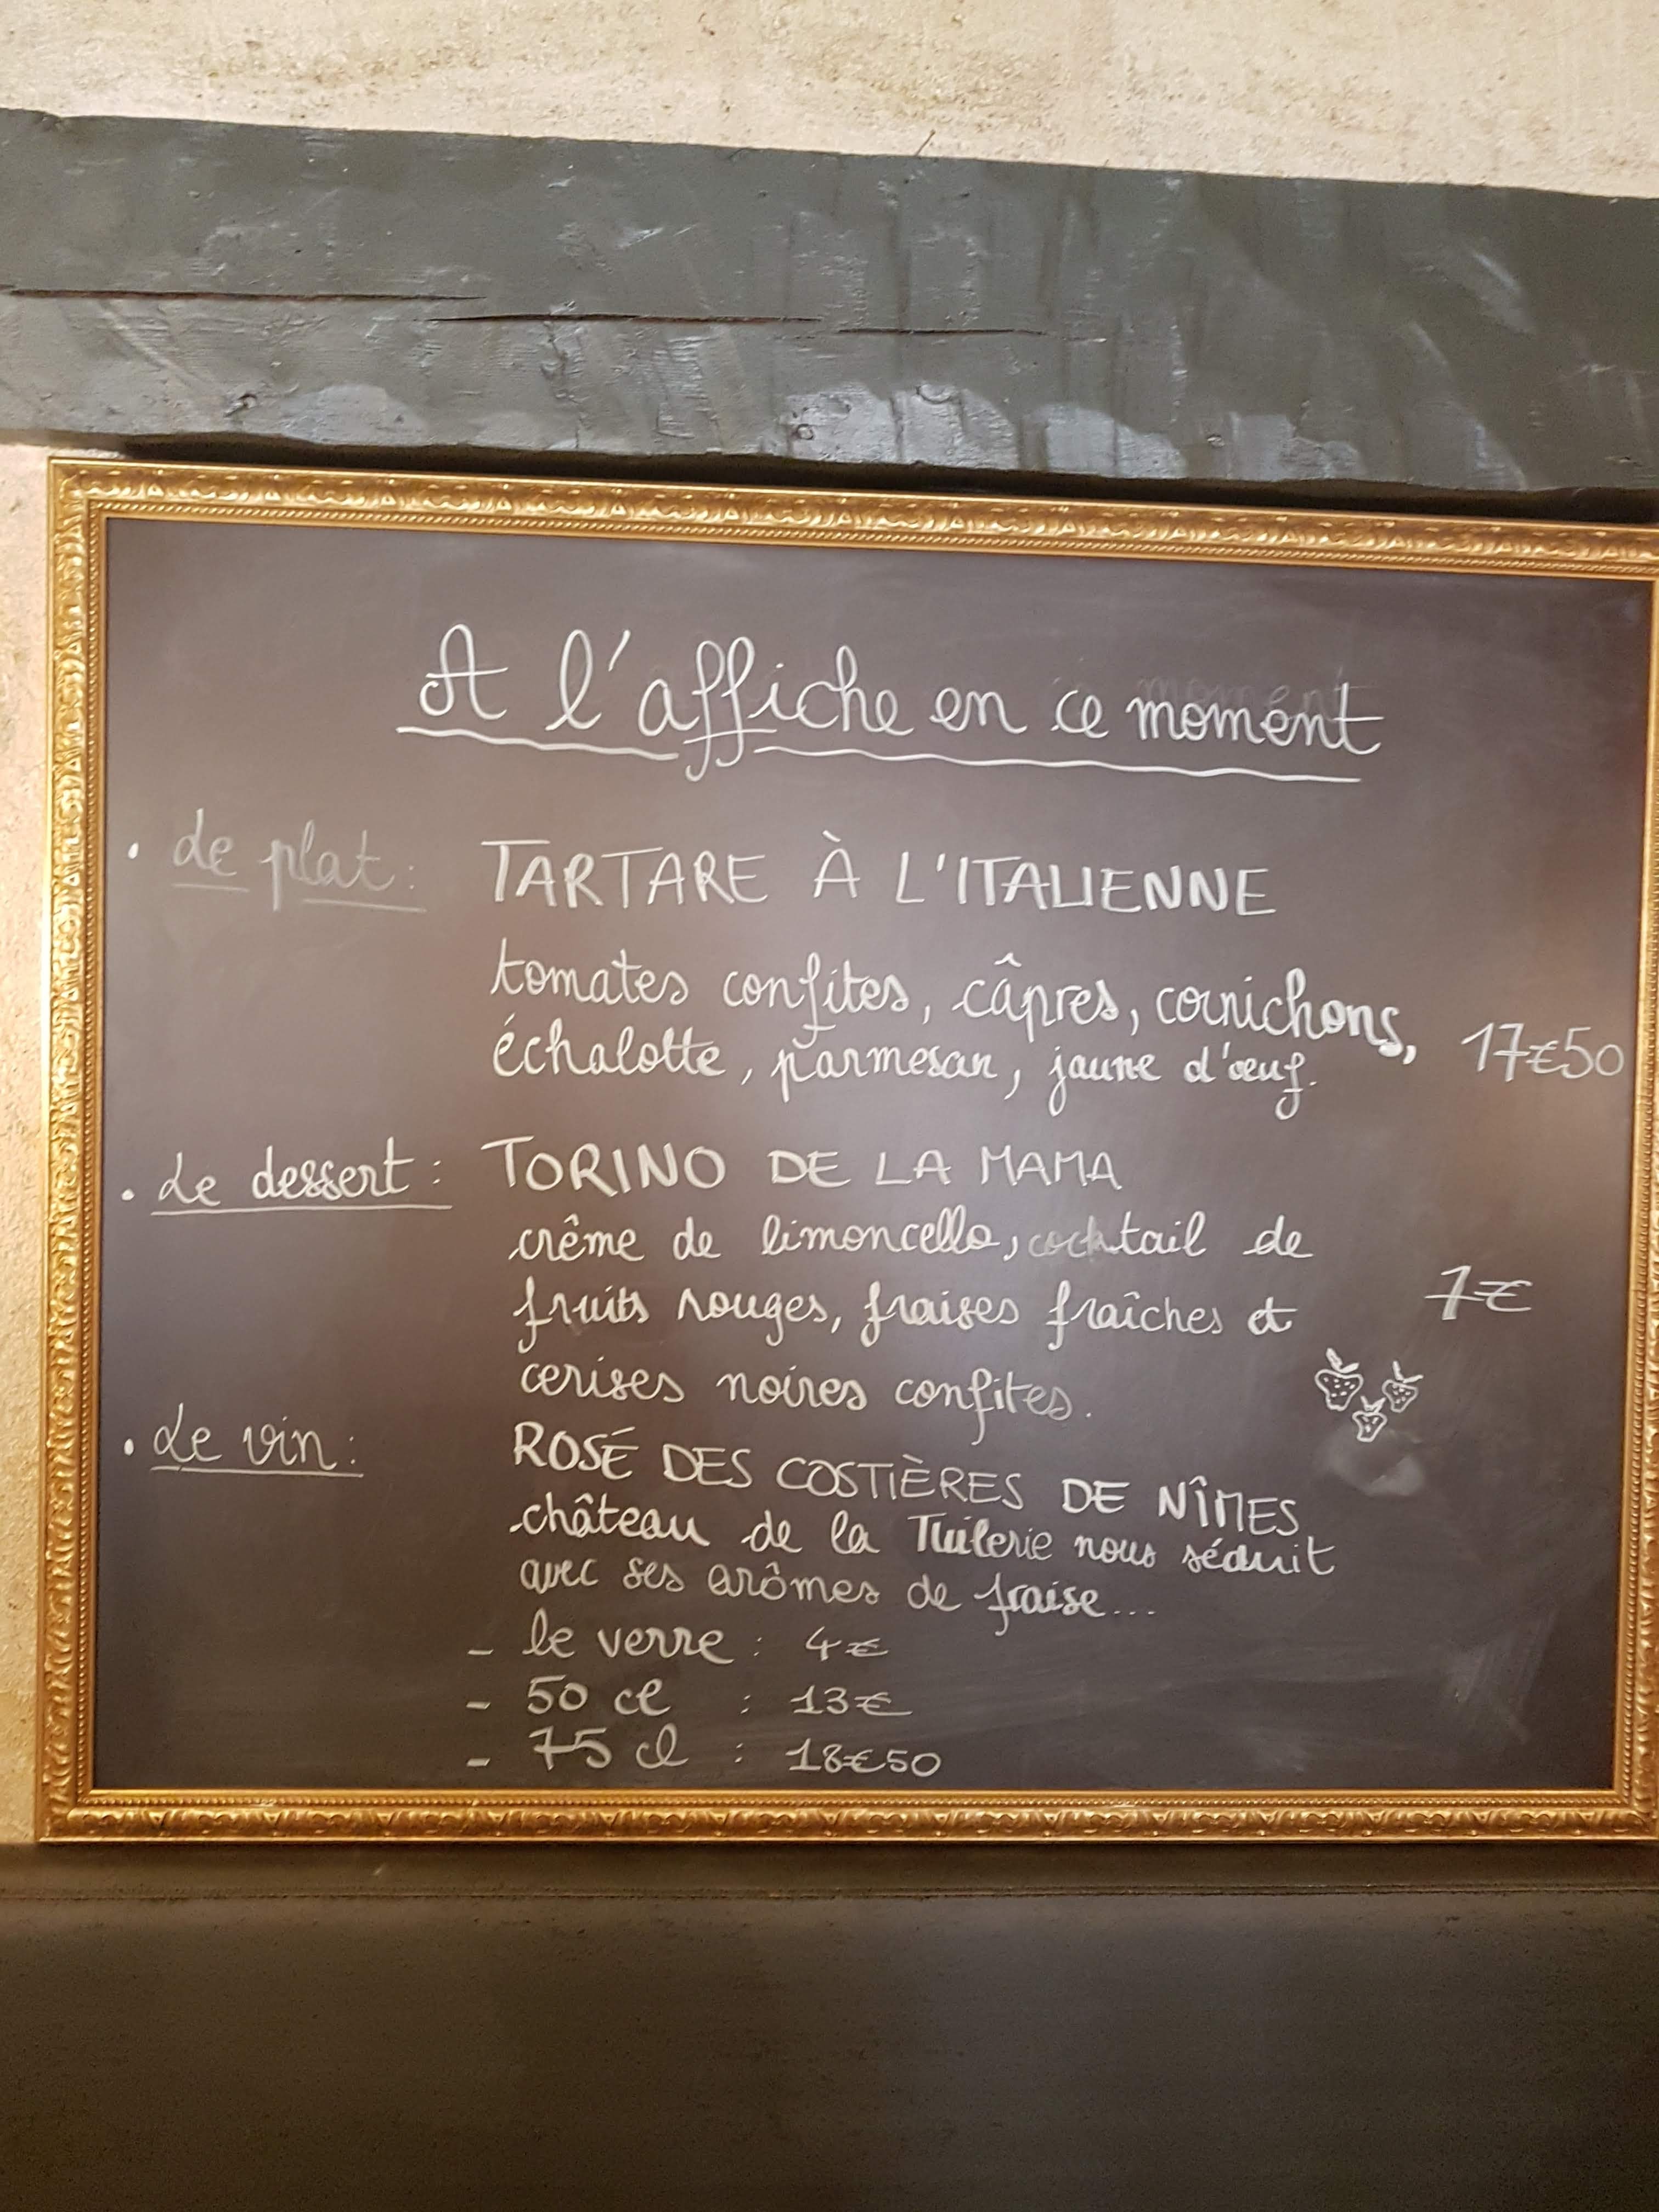 A l'affiche en ce moment
. Le plat : TARTARE À L'ITALIENNE
tomates confites, câpres, cornichons,
échalotte, parmesan, jaune d'œuf. 17€50
. Le dessert : TORINO DE LA MAMA
crême de limoncello, cocktail de
fruits rouges, fraises fraîches et 7€
cerises noires confites.
. Le vin : ROSÉ DES COSTIÈRES DE NÎMES
château de la Tuilerie nous séduit
avec ses arômes de fraise...
- le verre : 4€
- 50 cl : 13€
- 75 cl : 18€50